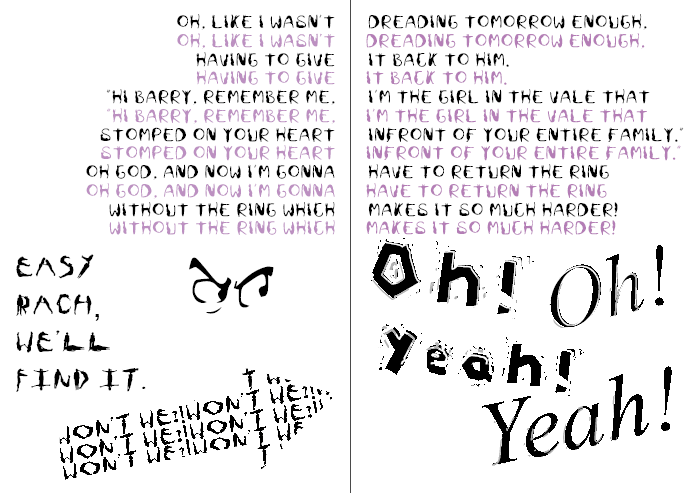 OH, LIKE I WASN'T DREADING TOMORROW ENOUGH.
OH, LIKE I WASN'T DREADING TOMORROW ENOUGH.
HAVING TO GIVE IT BACK TO HIM.
HAVING TO GIVE IT BACK TO HIM.
"HI BARRY. REMEMBER ME. I'M THE GIRL IN THE VALE THAT
"HI BARRY. REMEMBER ME. I'M THE GIRL IN THE VALE THAT
STOMPED ON YOUR HEART INFRONT OF YOUR ENTIRE FAMILY."
STOMPED ON YOUR HEART INFRONT OF YOUR ENTIRE FAMILY."
OH GOD, AND NOW I'M GONNA HAVE TO RETURN THE RING
OH GOD, AND NOW I'M GONNA HAVE TO RETURN THE RING
WITHOUT THE RING WHICH MAKES IT SO MUCH HARDER!
WITHOUT THE RING WHICH MAKES IT SO MUCH HARDER!
EASY
RACH,
WE'LL
FIND IT.
WON'T WE?!WON'T WE?!
WON'T WE?!WON'T WE?!
WON'T WE?!WON'T WE
Oh! Oh!
Yeah!
Yeah!